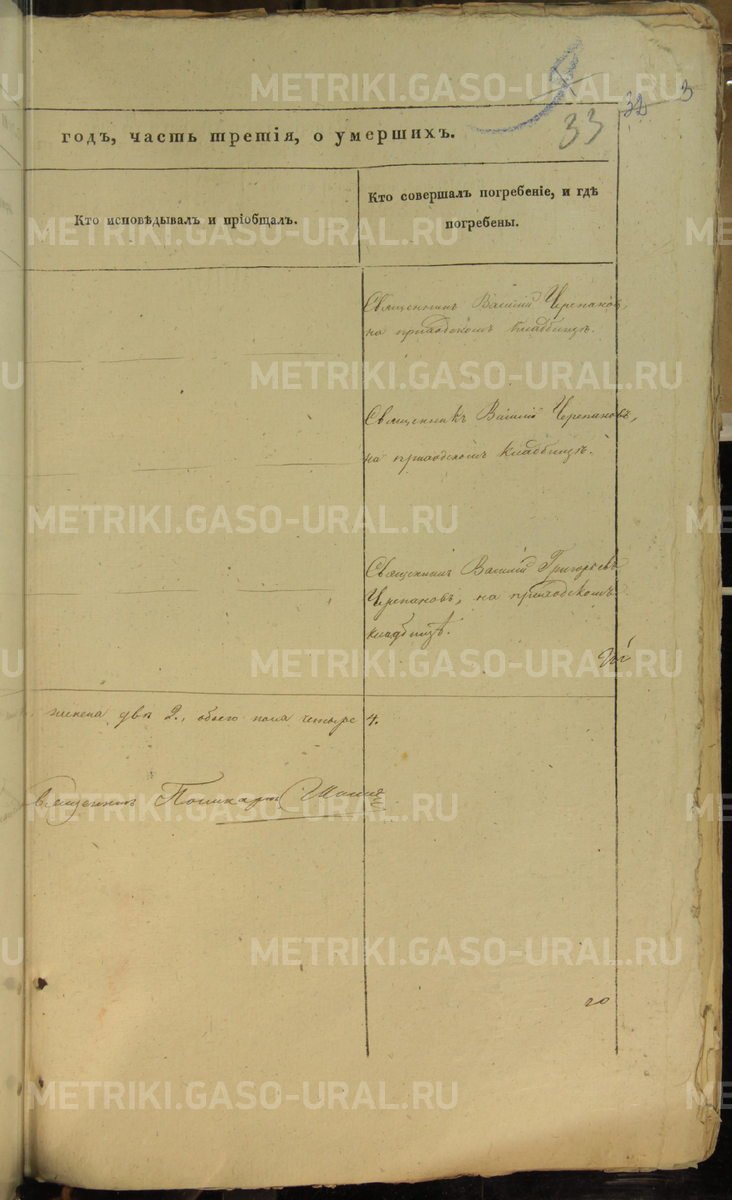 33
32
3
годъ, часть третія, о умершихъ.
Кто исповѣдывалъ и пріобщалъ.
Кто совершалъ погребеніе, и гдѣ
погребены.
Священникъ Василій Черепановъ,
на приходскомъ кладбищѣ.
Священникъ Василій Черепановъ,
на приходскомъ кладбищѣ.
Священникъ Василій Григорьевъ
Черепановъ, на приходскомъ
кладбищѣ.
женска двѣ 2., обоего пола четыре 4.
Священникъ Поликарпъ
METRIKI.GASO-URAL.RU